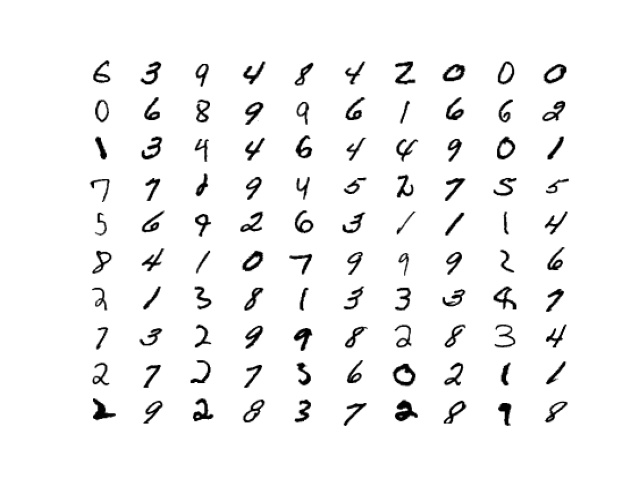 6 3 9 4 8 4 2 0 0 0
0 6 8 9 9 6 1 6 6 2
1 3 4 4 6 4 4 9 0 1
7 7 8 9 4 5 2 7 5 5
5 6 9 2 6 3 1 1 1 4
8 4 1 0 7 9 9 9 2 6
2 1 3 8 1 3 3 3 4 7
7 3 2 9 9 8 2 8 3 4
2 7 2 7 3 6 0 2 1 1
2 9 2 8 3 7 2 8 9 8